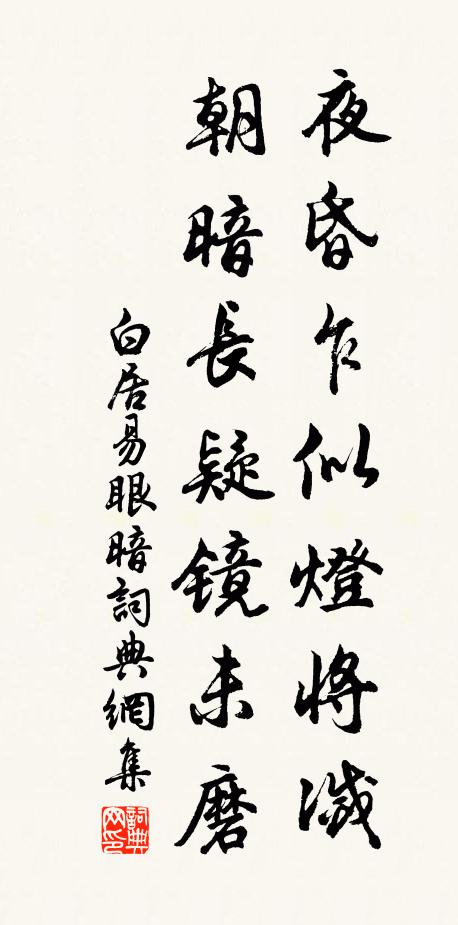 夜昏乍似燈将滅
朝暗長疑镜未磨
白居易眼暗詞典網集
詞典网印